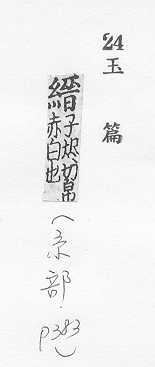 24
玉篇
縉子烬切帛
赤白也
(糸部.
P383)